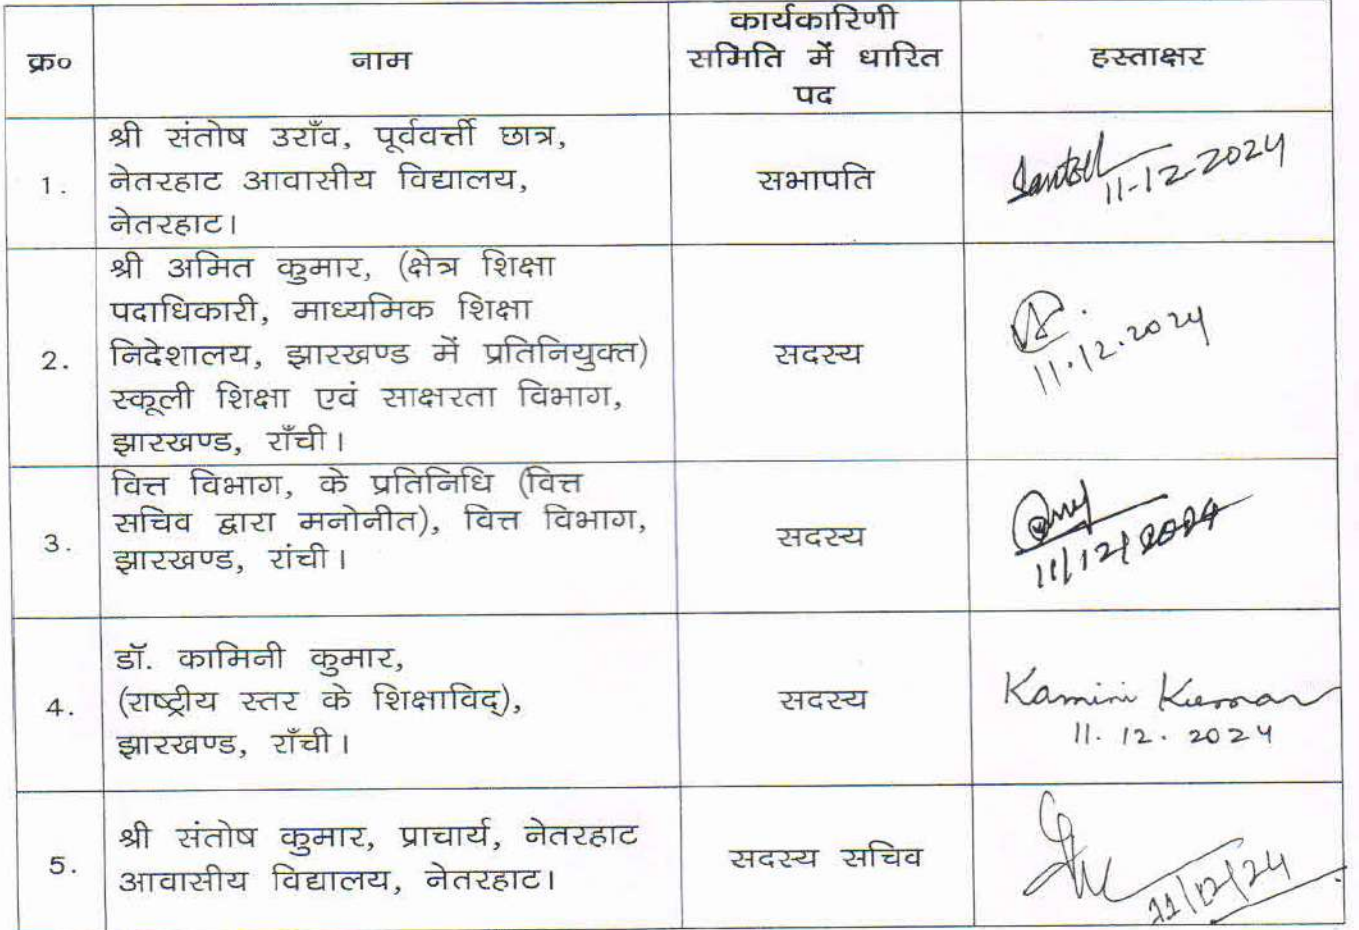 क्र०
नाम
कार्यकारिणी
समिति में धारित
पद
हस्ताक्षर
1.
श्री संतोष उराँव, पूर्ववर्त्ती छात्र,
नेतरहाट आवासीय विद्यालय,
नेतरहाट।
सभापति
11-12-2024
2.
श्री अमित कुमार, (क्षेत्र शिक्षा
पदाधिकारी, माध्यमिक शिक्षा
निदेशालय, झारखण्ड में प्रतिनियुक्त)
स्कूली शिक्षा एवं साक्षरता विभाग,
झारखण्ड, राँची।
सदस्य
11.12.2024
3.
वित्त विभाग, के प्रतिनिधि (वित्त
सचिव द्वारा मनोनीत), वित्त विभाग,
झारखण्ड, रांची।
सदस्य
11/12/2024
4.
डॉ. कामिनी कुमार,
(राष्ट्रीय स्तर के शिक्षाविद्),
झारखण्ड, राँची।
सदस्य
Kamini Kumar
11.12.2024
5.
श्री संतोष कुमार, प्राचार्य, नेतरहाट
आवासीय विद्यालय, नेतरहाट।
सदस्य सचिव
11/12/24